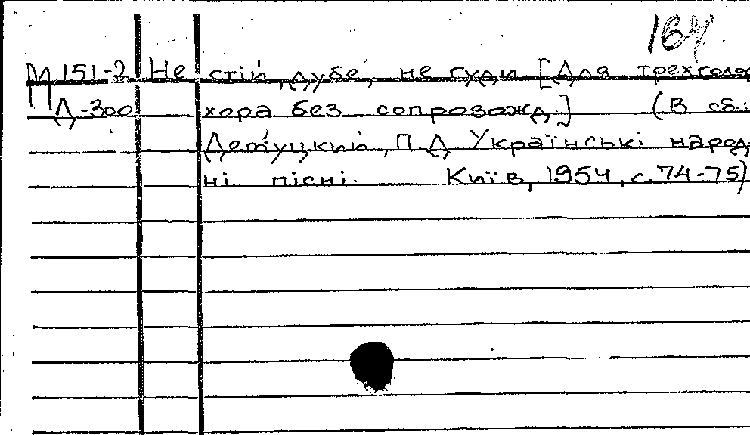 164
М 151-2 Не стій, дубе, не гуди [Для трехголос
Д-300 хора без сопровожд.] (В сб.:
П.Д. Українські народ
ні пісні. Київ, 1954, с. 74-75)